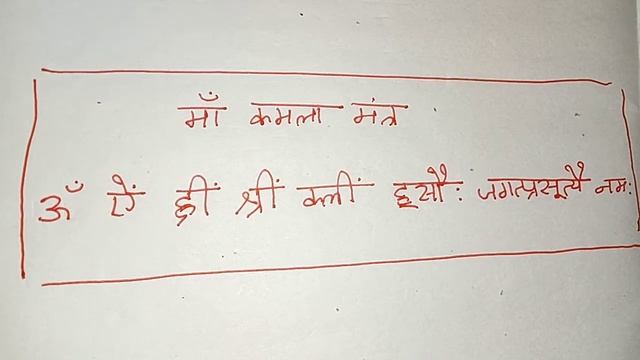 माँ कमला मंत्र
ॐ ऐं ह्रीं श्रीं क्लीं हूसौः जगत्प्रसूत्यै नमः